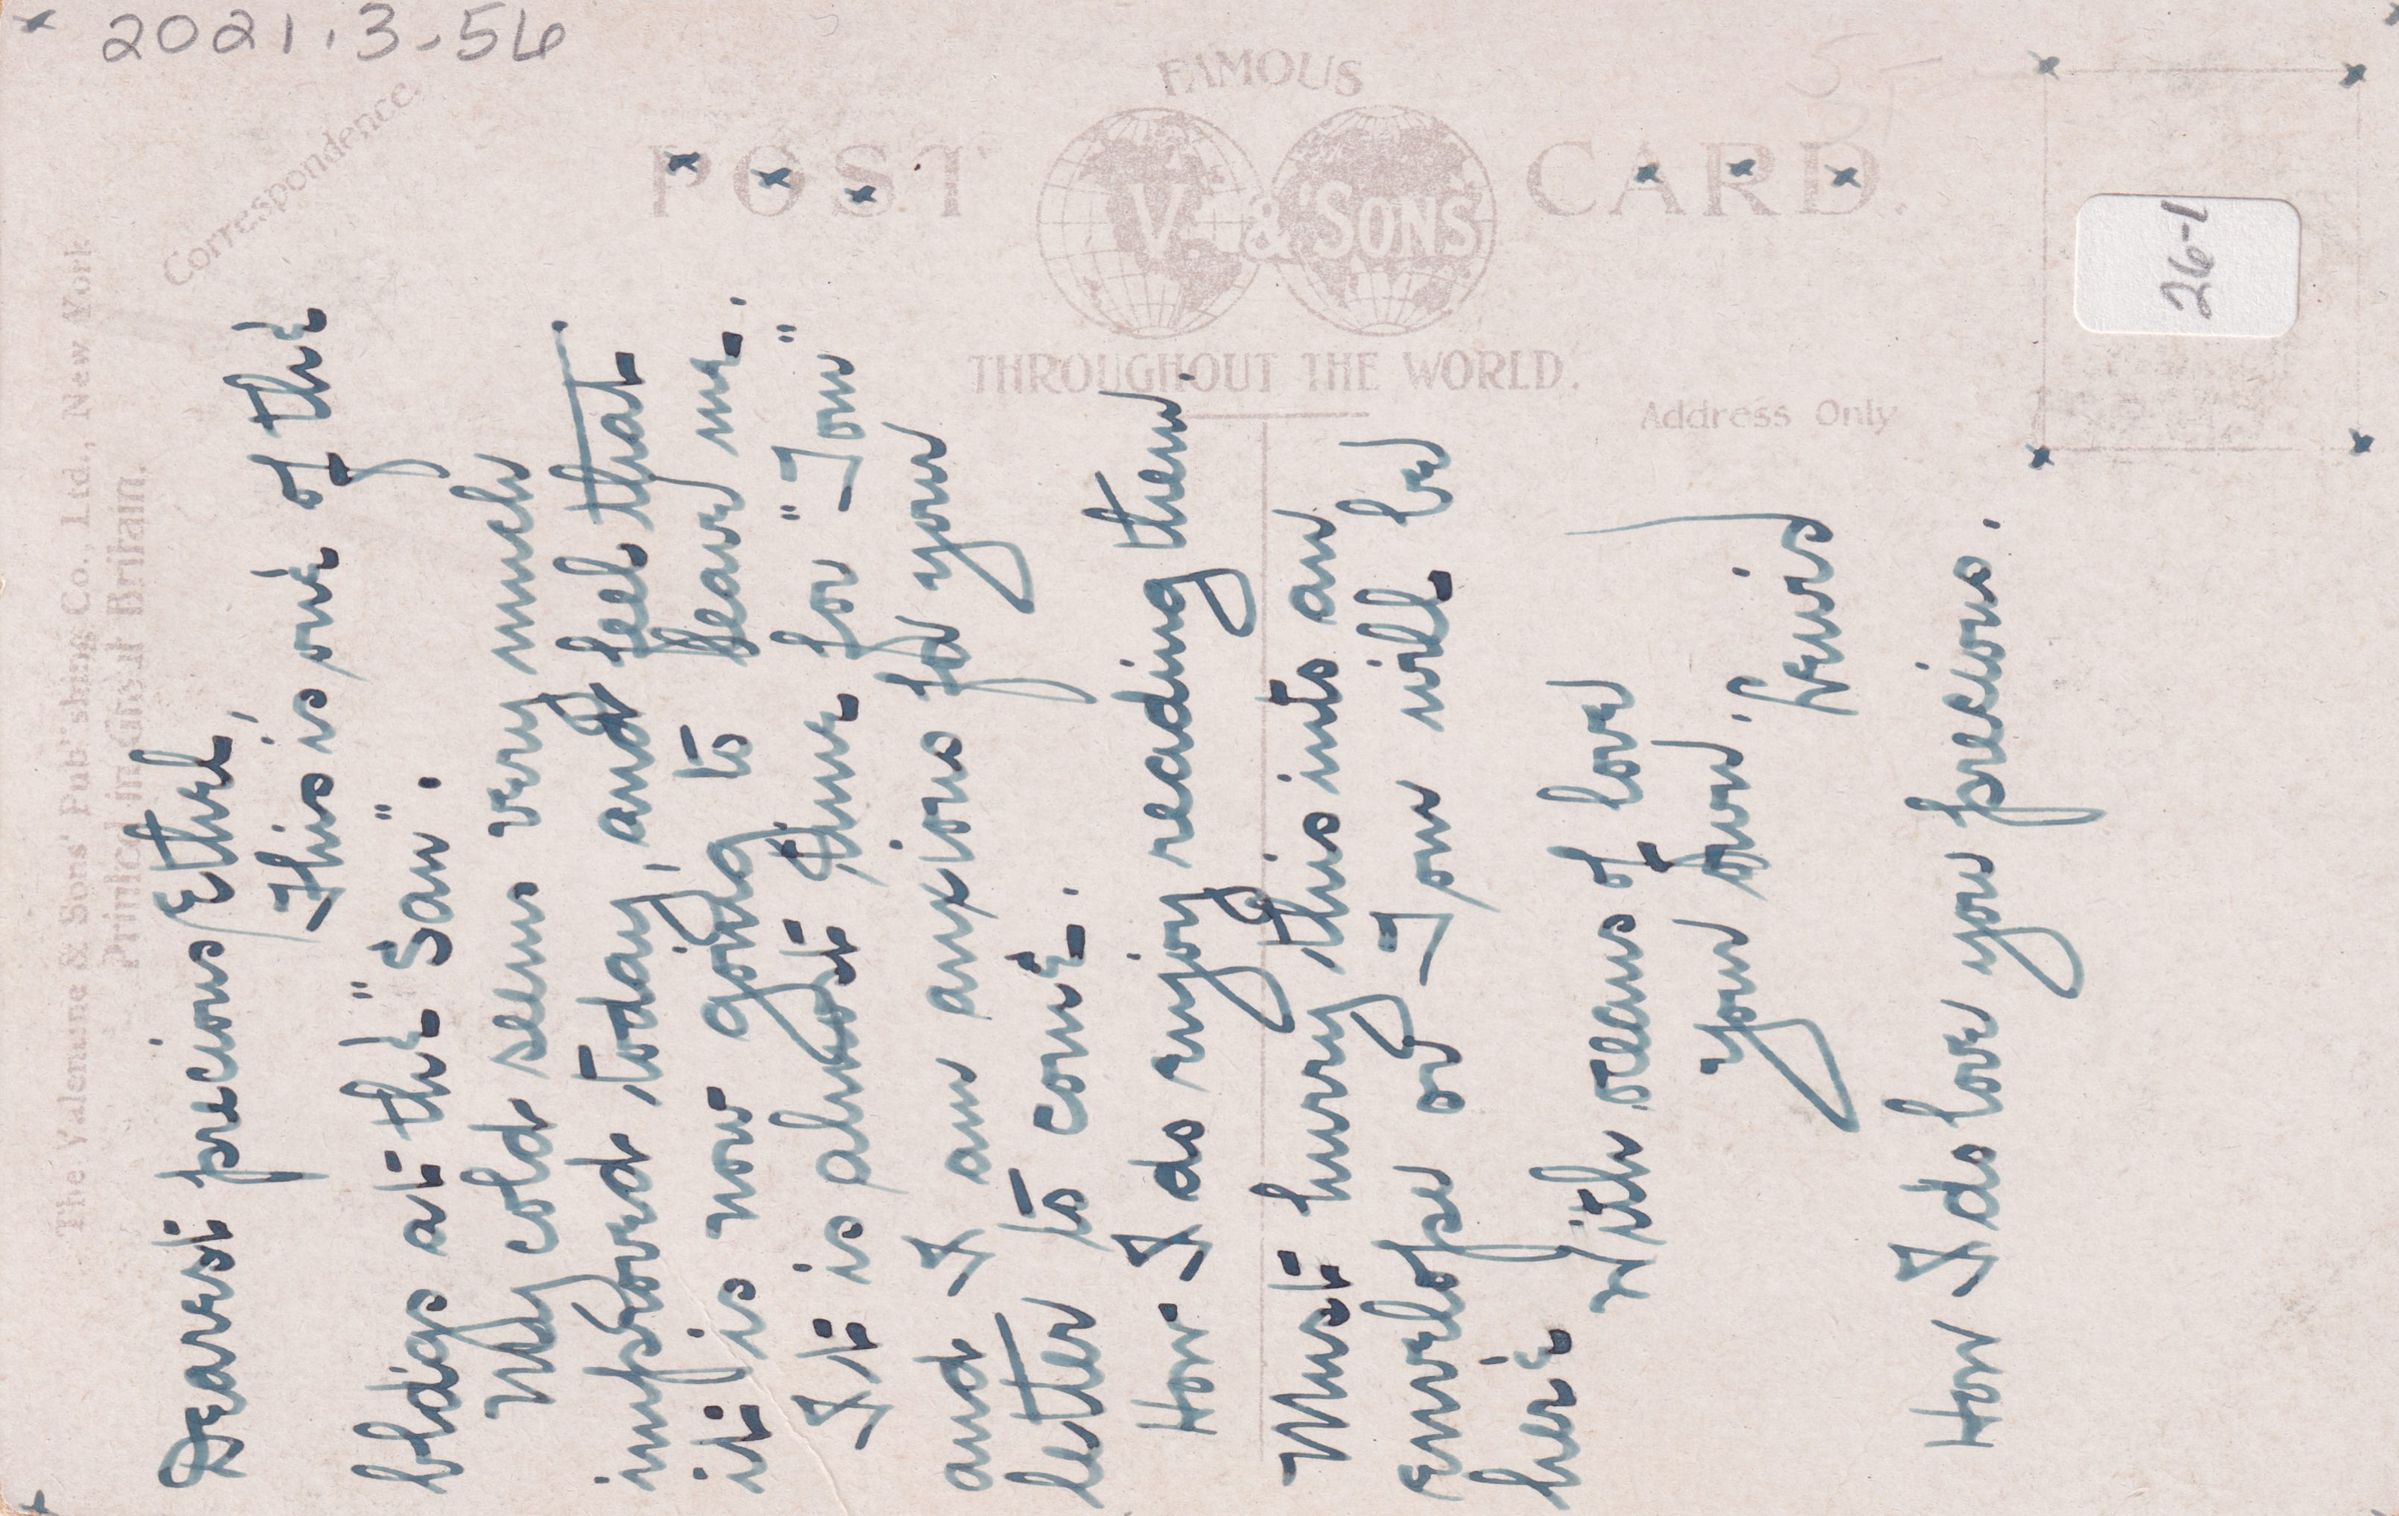 2021.3.56
Correspondence.
FAMOUS
POST CARD.
V & SONS
THROUGHOUT THE WORLD.
Address Only
26-1
The Valentine & Sons' Publishing Co., Ltd., New York
Printed in Great Britain.
Dearest precious Ethel,
This is one of the
bldigs at the "San".
My cold seems very much
improved today, and feel that
it is now going to leave me.
It is almost time for "Tom"
and I am anxious for your
letter to come.
How I do enjoy reading them.
Must hurry this into an
envelope or Tom will be
here
With oceans of love
Your own, Lewis
How I do love you precious.